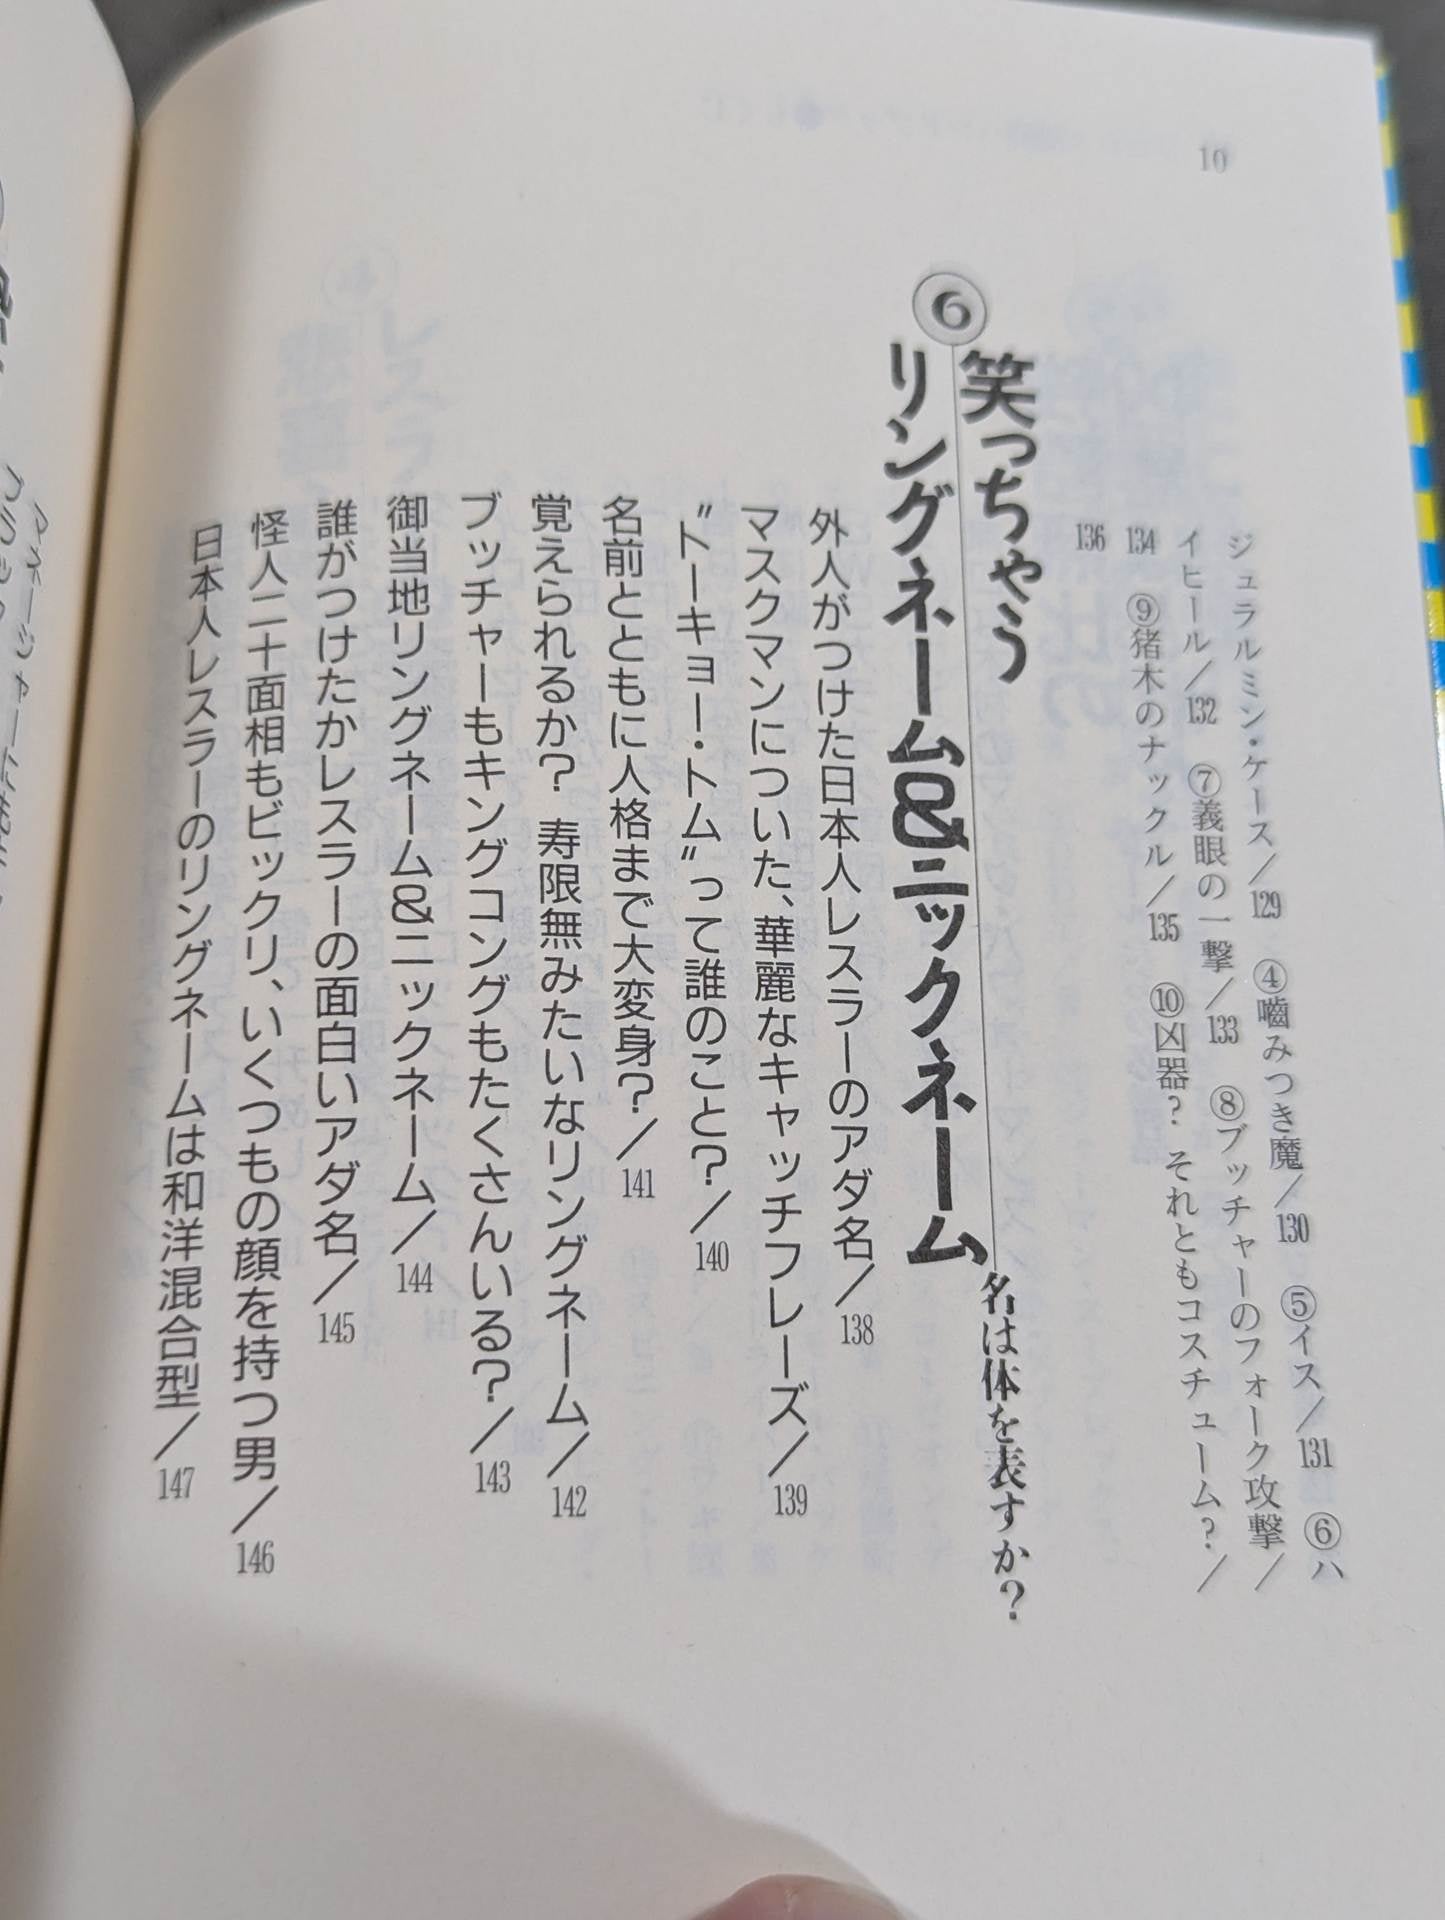 10
ジュラルミン・ケース／129　④噛みつき魔／130　⑤イス／131　⑥ハ
イヒール／132　⑦義眼の一撃／133　⑧ブッチャーのフォーク攻撃／
134　⑨猪木のナックル／135　⑩凶器？　それともコスチューム？／
136
⑥笑っちゃう
リングネーム＆ニックネーム
名は体を表すか？
外人がつけた日本人レスラーのアダ名／138
マスクマンについた、華麗なキャッチフレーズ／139
〝トーキョー・トム〟って誰のこと？／140
名前とともに人格まで大変身？／141
覚えられるか？　寿限無みたいなリングネーム／142
ブッチャーもキングコングもたくさんいる？／143
御当地リングネーム＆ニックネーム／144
誰がつけたかレスラーの面白いアダ名／145
怪人二十面相もビックリ、いくつもの顔を持つ男／146
日本人レスラーのリングネームは和洋混合型／147